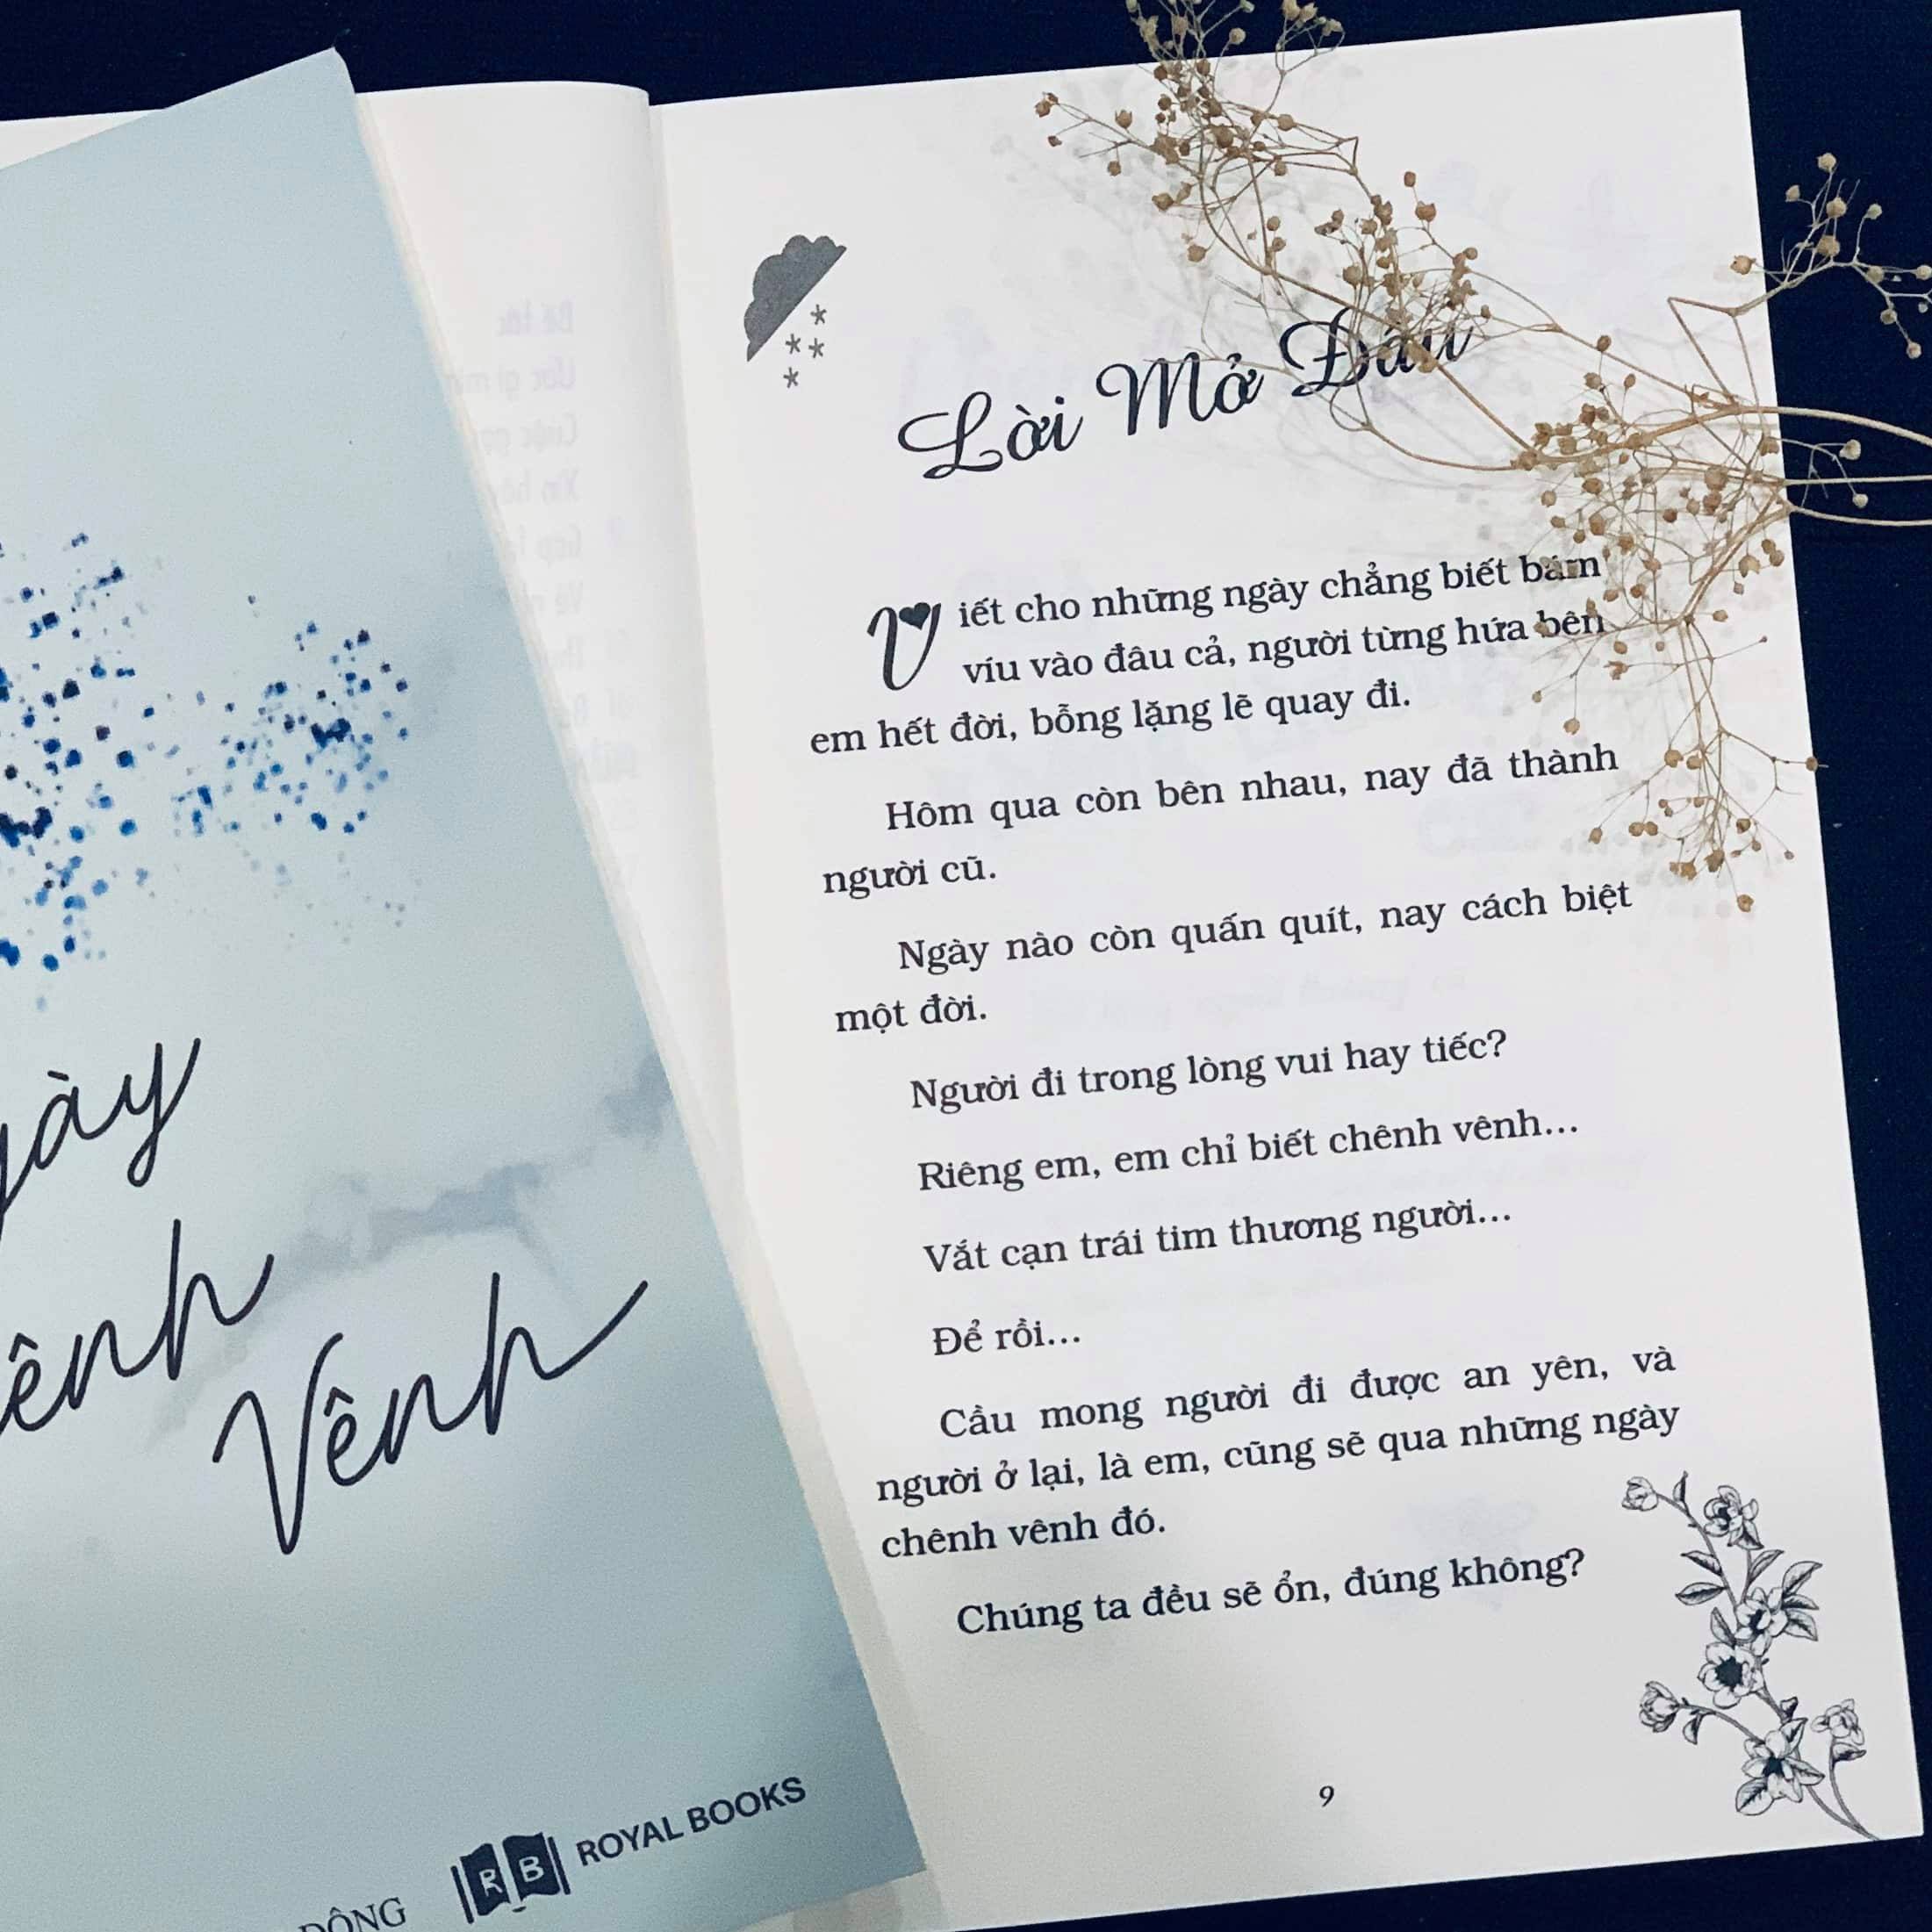 Vênh
ROYAL BOOKS
RB
Lời Mở Đầu
Viết cho những ngày chẳng biết bám
víu vào đâu cả, người từng hứa bên
em hết đời, bỗng lặng lẽ quay đi.
Hôm qua còn bên nhau, nay đã thành
người cũ.
Ngày nào còn quấn quít, nay cách biệt
một đời.
Người đi trong lòng vui hay tiếc?
Riêng em, em chỉ biết chênh vênh...
Vắt cạn trái tim thương người...
Để rồi...
Cầu mong người đi được an yên, và
người ở lại, là em, cũng sẽ qua những ngày
chênh vênh đó.
Chúng ta đều sẽ ổn, đúng không?
9